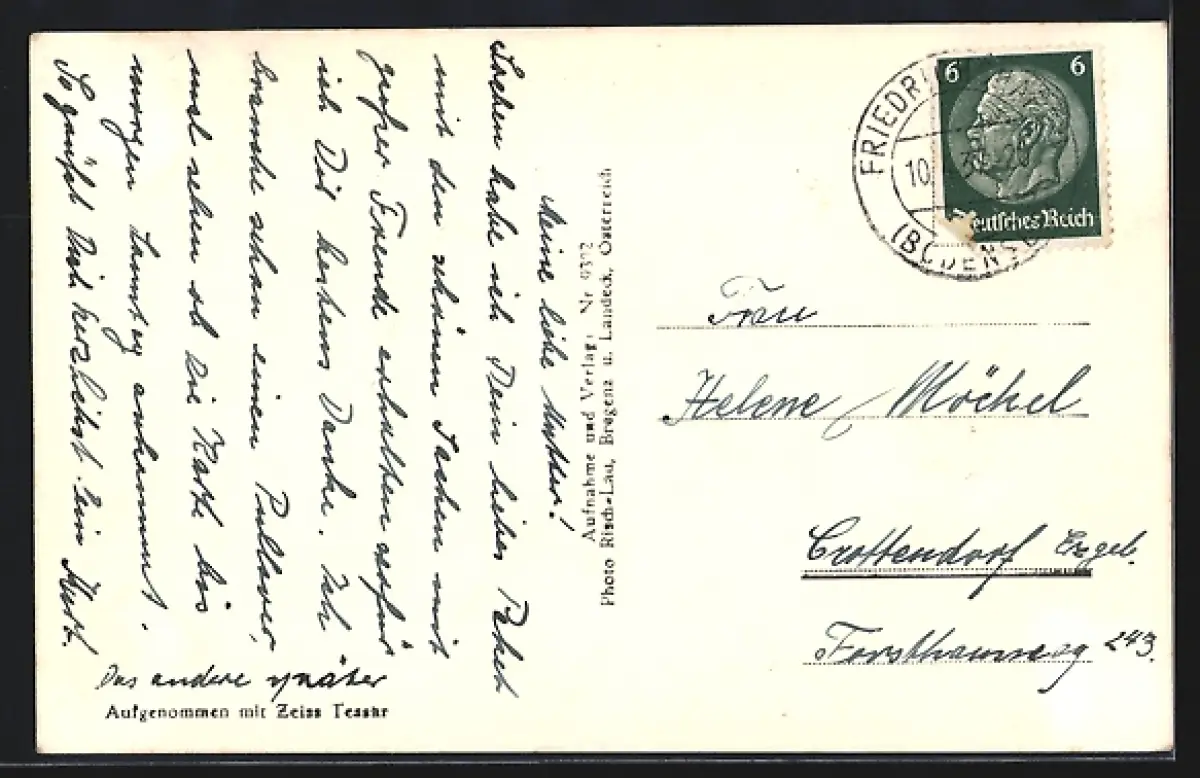 Meine liebe Mutter!
Soeben habe ich Dein liebes Paket
mit den schönen Sachen mit
großer Freude erhalten wofür
ich Dir bestens Danke. Ich
brauche schon einen Pullover,
mal sehen ob die Karte bis
morgen Sonntag ankommt.
So grüßt Dich herzlichst Dein Kurt.
Das andere später
Aufgenommen mit Zeiss Tessar
Aufnahme und Verlag: Nr 9372
Photo Risch-Lau, Bregenz u. Landeck, Österreich
FRIEDRI
10.
(BODENSEE
6 6
Deutsches Reich
Frau
Helene Möckel
Crottendorf Erzgeb.
243.